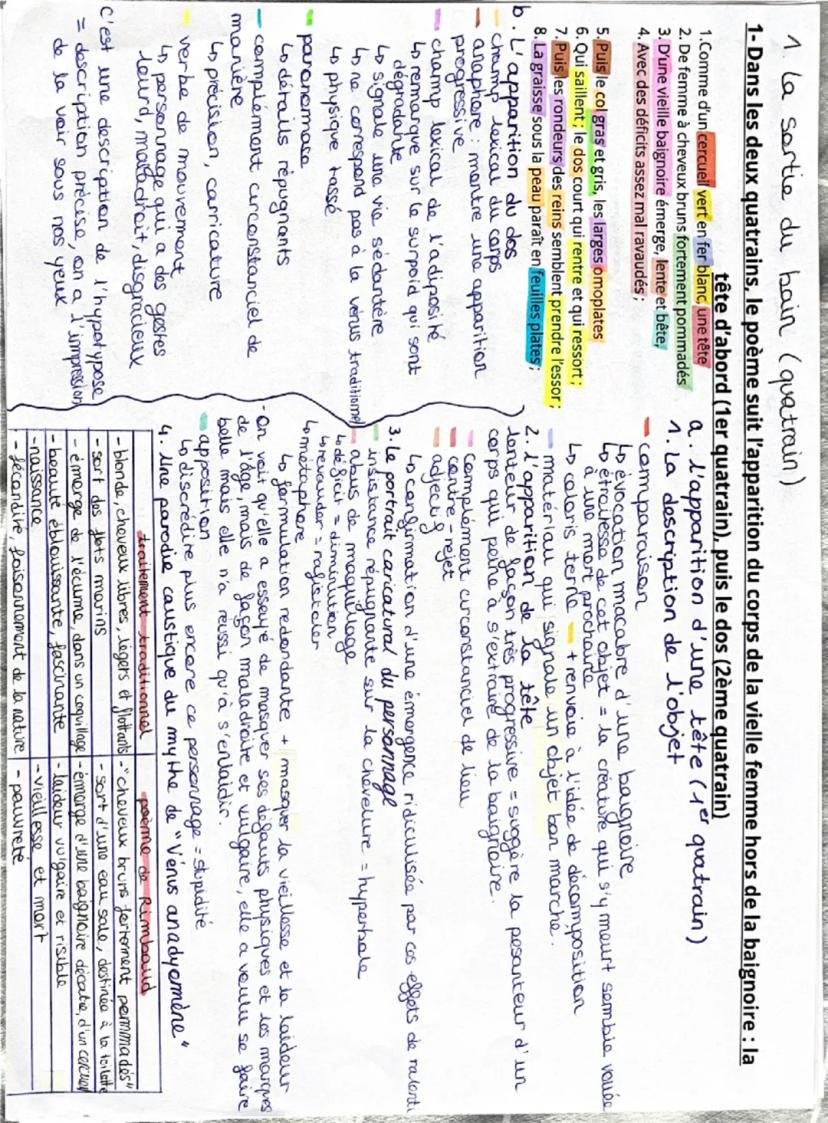 1. La sortie du bain (quatrain)
1- Dans les deux quatrains, le poème suit l'apparition du corps de la vielle femme hors de la baignoire : la
tête d'abord (1er quatrain), puis le dos (2ème quatrain)
1.Comme d'un cercueil vert en fer blanc, une tête
2. De femme à cheveux bruns fortement pommadés
3. D'une vieille baignoire émerge, lente et bête,
4. Avec des déficits assez mal ravaudés ;
5. Puis le col gras et gris, les larges omoplates
6. Qui saillent ; le dos court qui rentre et qui ressort ;
7. Puis les rondeurs des reins semblent prendre l'essor ;
8. La graisse sous la peau paraît en feuilles plates ;
a. l'apparition d'une tête (1er quatrain)
1. La description de l'objet
comparaison
↳ évocation macabre d'une baignoire
↳ étroitesse de cet objet = la créature qui s'y meurt semble vouée
à une mort prochaine
↳ coloris terne + renvoie à l'idée de décomposition
matériau qui signale un objet bon marché.
2. L'apparition de la tête
lenteur de façon très progressive = suggère la pesanteur d'un
corps qui peine à s'extraire de la baignoire.
complément circonstanciel de lieu
contre-rejet
adjectif
↳ confirmation d'une émergence ridiculisée par ces effets de ralenti
3. Le portrait caricatural du personnage
insistance répugnante sur la chevelure = hyperbole
abus de maquillage
↳ déficit = diminution
↳ ravauder = rafistoler
↳ métaphore
↳ formulation redondante + masquer la vieillesse et la laideur
- On voit qu'elle a essayé de masquer ses défauts physiques et les marques
de l'âge, mais de façon maladroite et vulgaire, elle a voulu se faire
belle mais elle n'a réussi qu'à s'enlaidir.
apposition
↳ discrédite plus encore ce personnage = stupidité
4. Une parodie caustique du mythe de "Vénus anadyomène"
traitement traditionnel
poème de Rimbaud
- blonde, cheveux libres, légers et flottants
- "cheveux bruns fortement pommadés"
- sort des flots marins
- sort d'une eau sale, destinée à la toilette
- émerge de l'écume, dans un coquillage
- émerge d'une baignoire décatie, d'un cercueil
- beauté éblouissante, fascinante
- laideur vulgaire et risible
- naissance
- vieillesse et mort
- fécondité, foisonnement de la nature
- pauvreté
b. L'apparition du dos
champ lexical du corps
anaphore : montre une apparition
progressive
champ lexical de l'adiposité
↳ remarque sur le surpoid qui sont
dégradante
↳ signale une vie sédentère
↳ ne correspond pas à la vénus traditionnel
↳ physique tassé
paronomase
↳ détails répugnants
complément circonstanciel de
manière
↳ précision, carricature
verbe de mouvement
↳ personnage qui a des gestes
lourd, maladroit, disgracieux
C'est une description de l'hypotypose
= description précise, on a l'impression
de la voir sous nos yeux